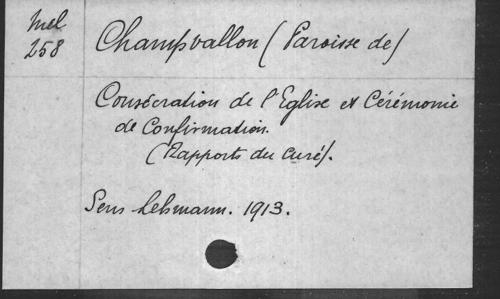 Mel
258
Champvallon (Paroisse de)
Consécration de l'Eglise et Cérémonie
de Confirmation.
(Rapports du curé).
Sens Lehmann. 1913.